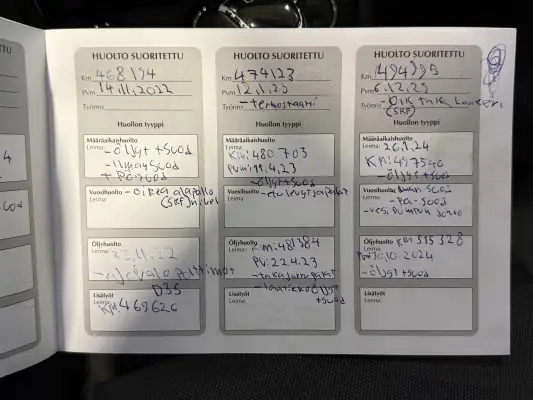 TETTU
HUOLTO SUORITETTU
Km 468 194
Pvm 14.11.2022
Työnro
Huollon tyyppi
Määräaikaishuolto
Leima:
-öljyt+suod
-ilmansuod
+ Pasuod
Vuosihuolto
Leima:
-oikea alapallo
(SKF) nivel
Öljyhuolto
Leima:
23.11.22
-ajovalo polttimot
D3S
Lisätyöt
Leima:
KM: 469626
HUOLTO SUORITETTU
Km 474123
Pvm 12.1.23
Työnro -termostaatti
Huollon tyyppi
Määräaikaishuolto
Leima:
KM: 480 703
Pvm: 11.4.23
-öljyt+suod
Vuosihuolto
Leima:
-etulevytjapalat
Öljyhuolto
Leima:
Km: 481384
PV: 22.4.23
-takajarrupalat
-laatikkoöljyt
+suod
Lisätyöt
Leima:
HUOLTO SUORITETTU
Km 494995
Pvm 6.12.23
Työnro -Oik taka laakeri
(SKF)
Huollon tyyppi
Määräaikaishuolto
Leima:
26.1.24
KM: 497540
-öljyt+suod
Vuosihuolto
Leima:
-pa-suod
-vesipumpun
Öljyhuolto
Leima:
KM 515 328
Pvm 30.10.2024
-öljyt+suod
Lisätyöt
Leima: